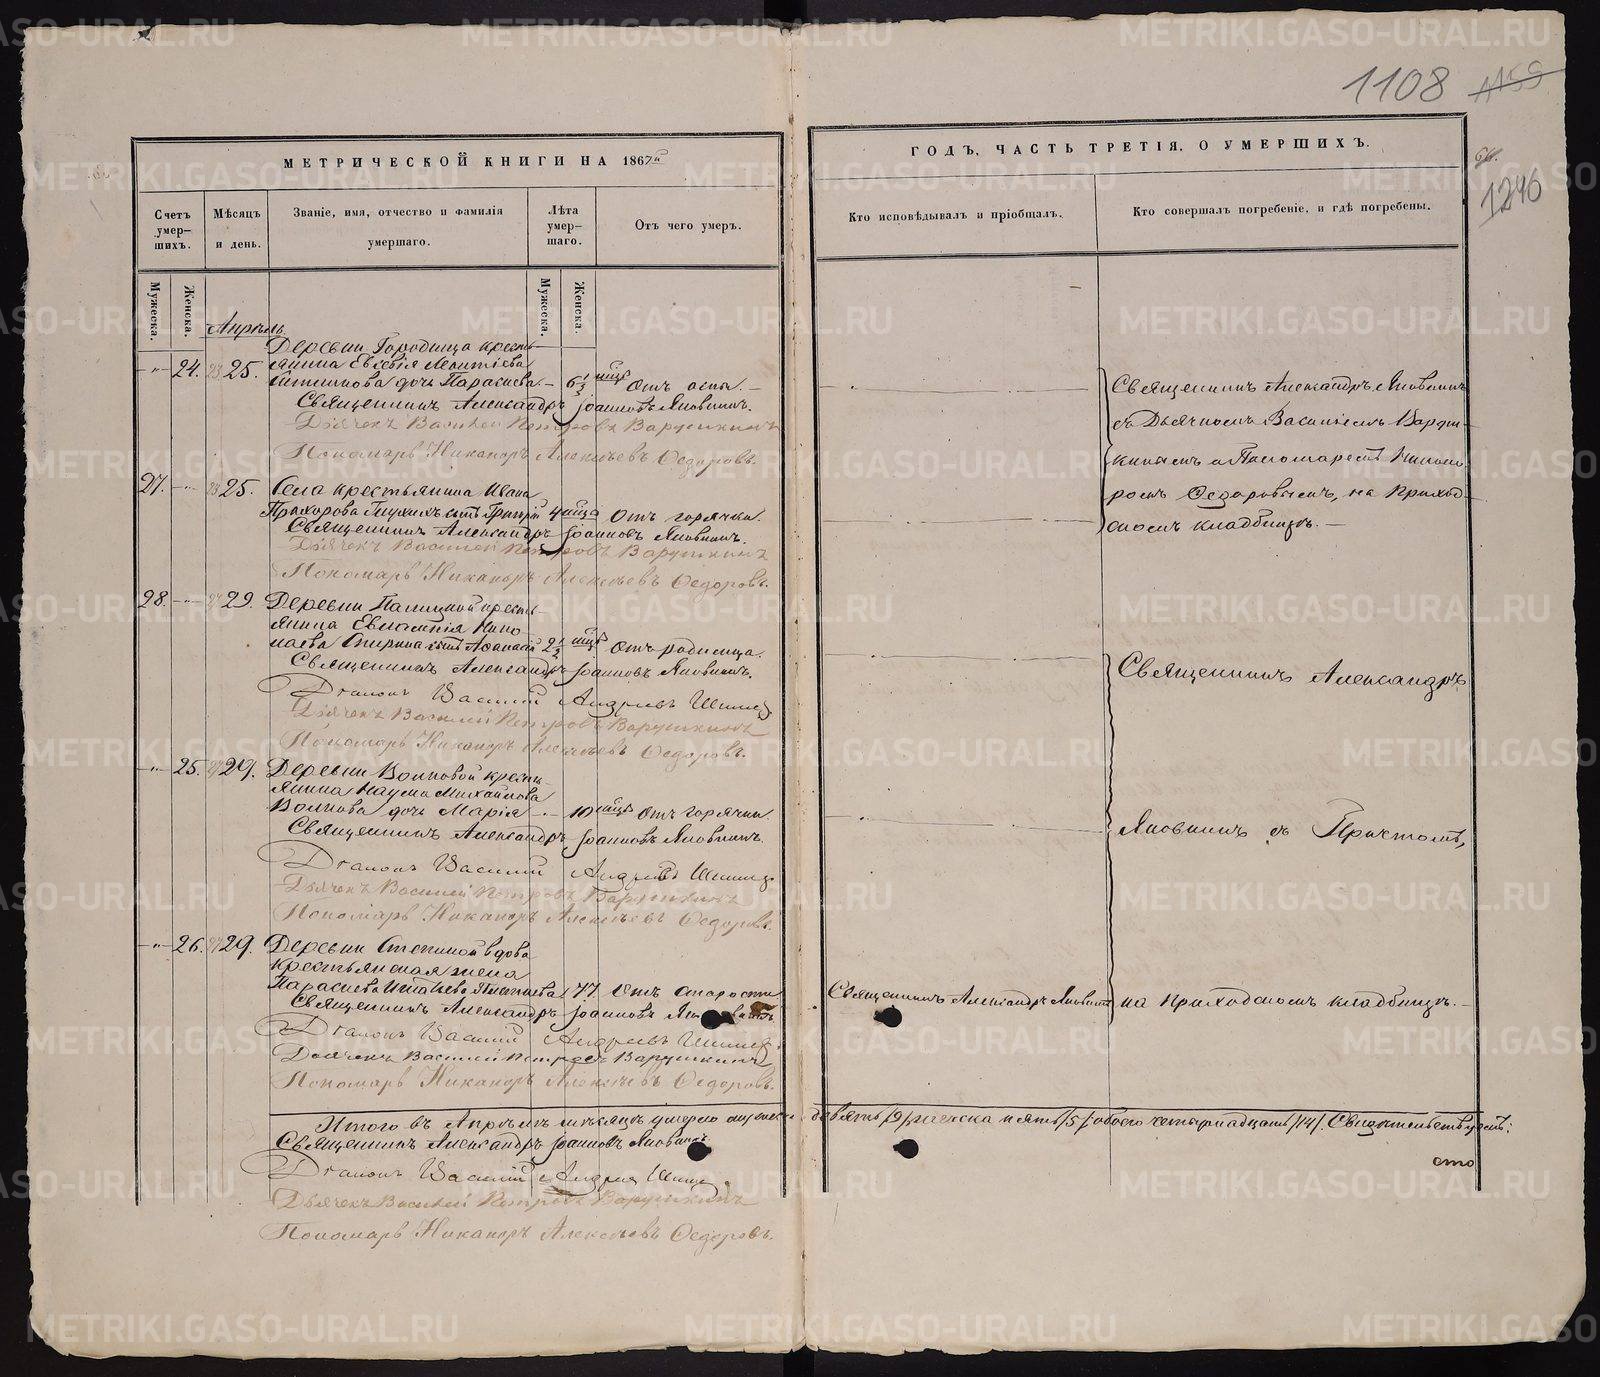 1108 1159
МЕТРИЧЕСКОЙ КНИГИ НА 1867й
ГОДЪ, ЧАСТЬ ТРЕТІЯ, О УМЕРШИХЪ.
1246
Счетъ умер-шихъ.
Мѣсяцъ и день.
Званіе, имя, отчество и фамилія умершаго.
Лѣта умер-шаго.
Отъ чего умеръ.
Кто исповѣдывалъ и пріобщалъ.
Кто совершалъ погребеніе, и гдѣ погребены.
Мужеска.
Женска.
Мужеска.
Женска.
Апрѣль.
Деревни Городища кресть-
24. 23 25. янина Евсевія
дочь Параскева — 6½ мцъ Отъ оспы. —
Священникъ Александръ Іоанновъ Яновскій.
Дьячекъ Василей Петровъ Варушкинъ
Пономарь Никаноръ Алексѣевъ Ѳедоровъ.
Священникъ Александръ Яновскій
съ Дьячкомъ Василіемъ Варуш-
кинымъ и Пономаремъ Никано-
ромъ Ѳедоровымъ, на приход-
скомъ кладбищѣ. —
27. 23 25. Села крестьянина Ивана
Прохорова сынъ Григорій 4 мца Отъ горячки.
Священникъ Александръ Іоанновъ Яновскій.
Дьячекъ Василей Петровъ Варушкинъ
Пономарь Никаноръ Алексѣевъ Ѳедоровъ.
28. 27 29. Деревни кресть-
янина Евлампія Нико-
лаева Спирина сынъ Аѳанасій 2½ мцъ Отъ родимца.
Священникъ Александръ Іоанновъ Яновскій.
Діаконъ Василій Андреевъ
Дьячекъ Василей Петровъ Варушкинъ
Пономарь Никаноръ Алексѣевъ Ѳедоровъ.
Священникъ Александръ
25. 27 29. Деревни Волковой кресть-
янина Наума Михайлова
Волкова дочь Марія — 10 мцъ Отъ горячки
Священникъ Александръ Іоанновъ Яновскій.
Діаконъ Василій Андреевъ
Дьячекъ Василей Петровъ Варушкинъ
Пономарь Никаноръ Алексѣевъ Ѳедоровъ.
Яновскій съ Причтомъ,
26. 27 29. Деревни вдова
крестьянская жена
Параскева 77 Отъ старости
Священникъ Александръ Яновскій
на приходскомъ кладбищѣ. —
Священникъ Александръ Іоанновъ
Діаконъ Василій Андреевъ
Дьячекъ Василей Петровъ Варушкинъ
Пономарь Никаноръ Алексѣевъ Ѳедоровъ.
Итого въ Апрѣлѣ мѣсяцѣ умерло мужеска девять /9/ женска пять /5/ обоего четырнадцать /14/. Свидѣтельствуемъ:
что
Священникъ Александръ Іоанновъ Яновскій
Діаконъ Василій
Дьячекъ Василей Петровъ Варушкинъ
Пономарь Никаноръ Алексѣевъ Ѳедоровъ.
METRIKI.GASO-URAL.RU